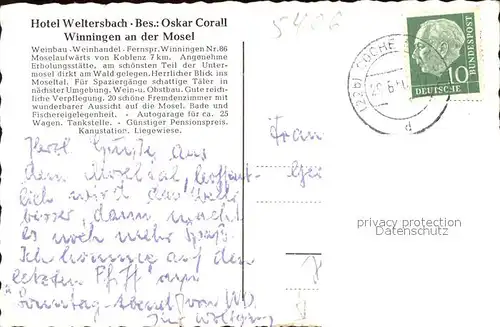 Hotel Weltersbach · Bes.: Oskar Corall
Winningen an der Mosel
Weinbau · Weinhandel · Fernspr. Winningen Nr. 86
Moselaufwärts von Koblenz 7 km. Angenehme
Erholungsstätte, am schönsten Teil der Unter-
mosel dirkt am Wald gelegen. Herrlicher Blick ins
Moseltal. Für Spaziergänge schattige Täler in
nächster Umgebung. Wein-u. Obstbau. Gute reich-
liche Verpflegung. 20 schöne Fremdenzimmer mit
wunderbarer Aussicht auf die Mosel. Bade und
Fischereigelegenheit. · Autogarage für ca. 25
Wagen. Tankstelle. · Günstiger Pensionspreis.
Kanustation. Liegewiese.
Herzl. Grüße aus
dem Moseltal, hoffent-
lich wird das Wetter
besser, dann macht
es noch mehr Spaß.
Ich komme auf den
letzten Pfiff am
Sonntag-Abend
Wolfgang
5406
(22b) COCHE
d
10
DEUTSCHE
BUNDESPOST
privacy protection
Datenschutz